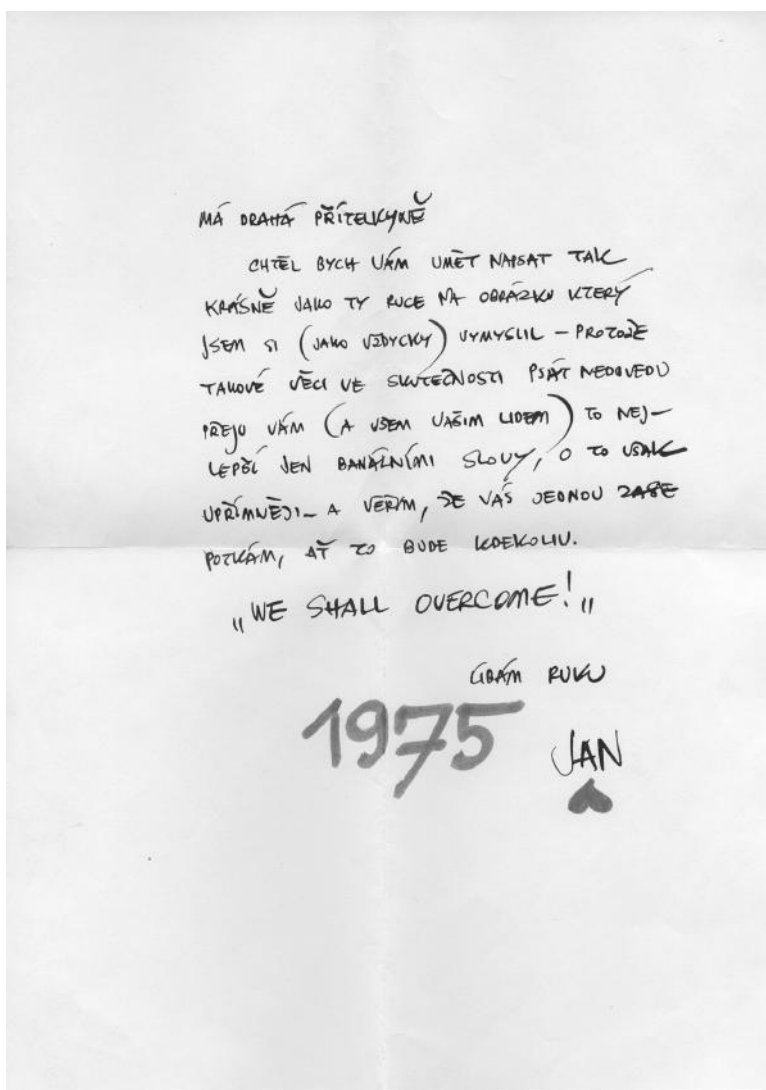 MÁ DRAHÁ PŘÍTELKYNĚ
CHTĚL BYCH VÁM UMĚT NAPSAT TAK
KRÁSNĚ JAKO TY RUCE NA OBRÁZKU KTERÝ
JSEM SI (JAKO VŽDYCKY) VYMYSLIL – PROTOŽE
TAKOVÉ VĚCI VE SKUTEČNOSTI PSÁT NEDOVEDU
PŘEJU VÁM (A VŠEM VAŠIM LIDEM) TO NEJ–
LEPŠÍ JEN BANÁLNÍMI SLOVY, O TO VŠAK
UPŘÍMNĚJI – A VĚŘÍM, ŽE VÁS JEDNOU ZASE
POTKÁM, AŤ TO BUDE KDEKOLIV.
„WE SHALL OVERCOME!„
LÍBÁM RUKU
1975 JAN